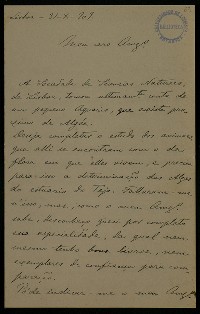 Lisboa - 21-X-909
Meu caro Amgº
A Sociedade de Sciencias Naturaes,
de Lisboa, tomou ultimamente conta de
um pequeno Aquario, que existia pro-
ximo de Algés.
Deseja completar o estudo dos animaes
que alli se encontram com o da
flora em que elles vivem, e pensou
para isso a determinação das Algas
do estuario do Tejo. Fallaram-me
n'isso, mas, como o meu Amgº
sabe, desconheço quasi por completo
essa especialidade, da qual nem
mesmo tenho bons livros, nem
exemplares de confiança para com-
paração.
Póde indicar-me o meu Amgº